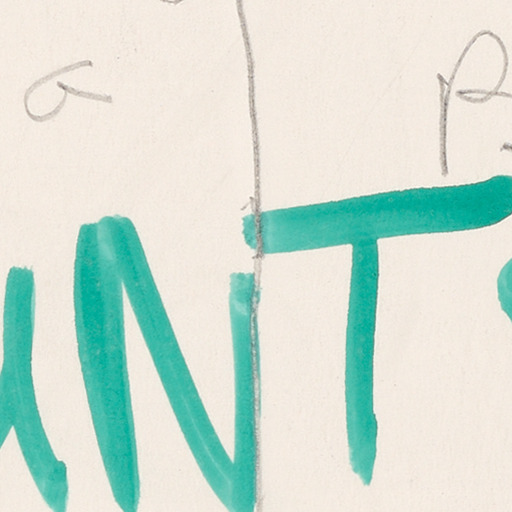 a p
UNT